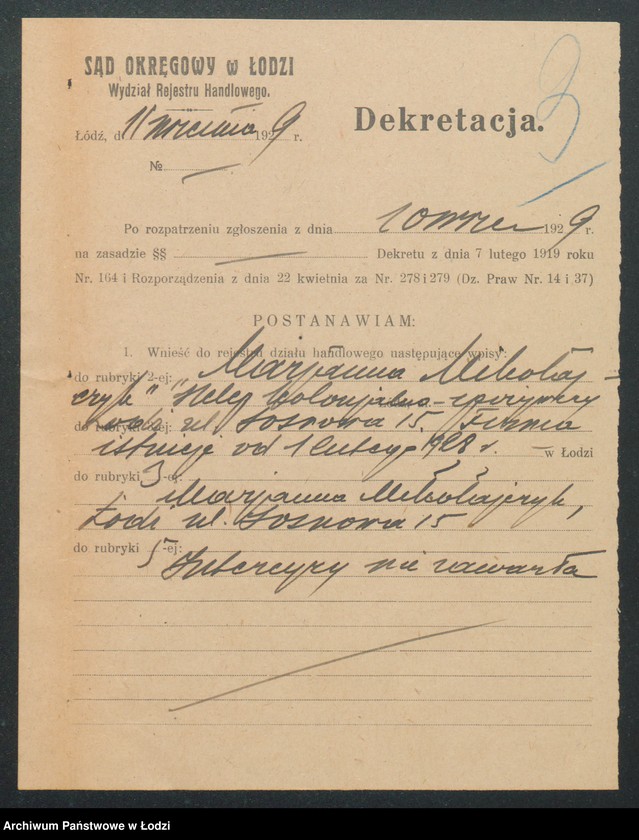 SĄD OKRĘGOWY w ŁODZI
Wydział Rejestru Handlowego.
Łódź, d. 11 września 1929 r.
Dekretacja.
3
№
Po rozpatrzeniu zgłoszenia z dnia 10 wrześ 1929 r.
na zasadzie §§ Dekretu z dnia 7 lutego 1919 roku
Nr. 164 i Rozporządzenia z dnia 22 kwietnia za Nr. 278 i 279 (Dz. Praw Nr. 14 i 37)
POSTANAWIAM:
1. Wnieść do rejestru działu handlowego następujące wpisy:
do rubryki 2-ej: „Marjanna Mikołaj-
czyk" „Sklep kolonjalno-spożywczy
Łódź, ul. Sosnowa 15. Firma
do rubryki -ej:
istnieje od 1 lutego 1928 r. — w Łodzi
do rubryki 3-ej:
Marjanna Mikołajczyk,
Łódź ul. Sosnowa 15
do rubryki 5-ej:
Intercyzy nie zawarła
Archiwum Państwowe w Łodzi